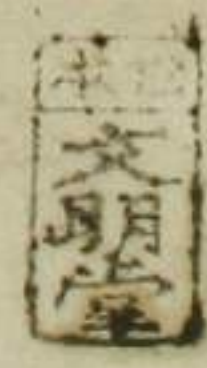 文明堂